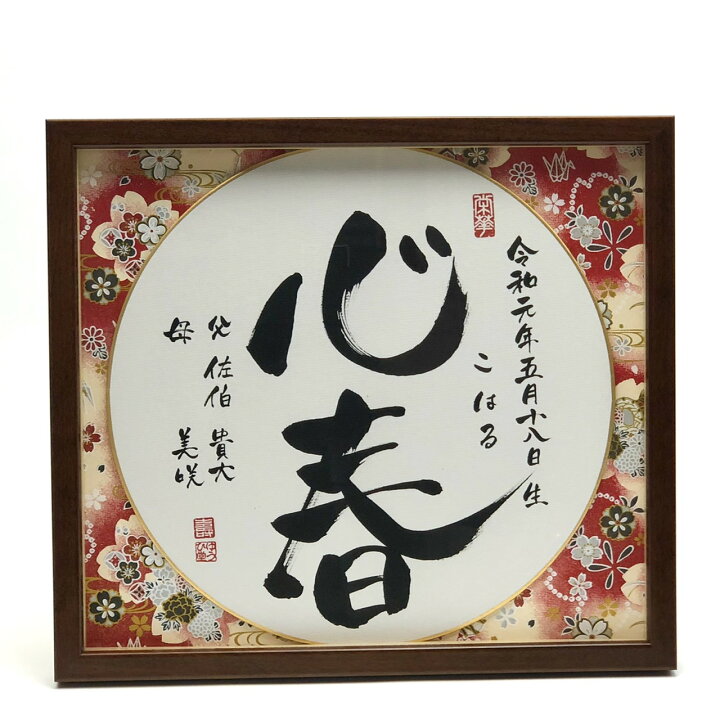 令和元年五月十八日生
こはる
心春
父 佐伯 貴大
母 美咲